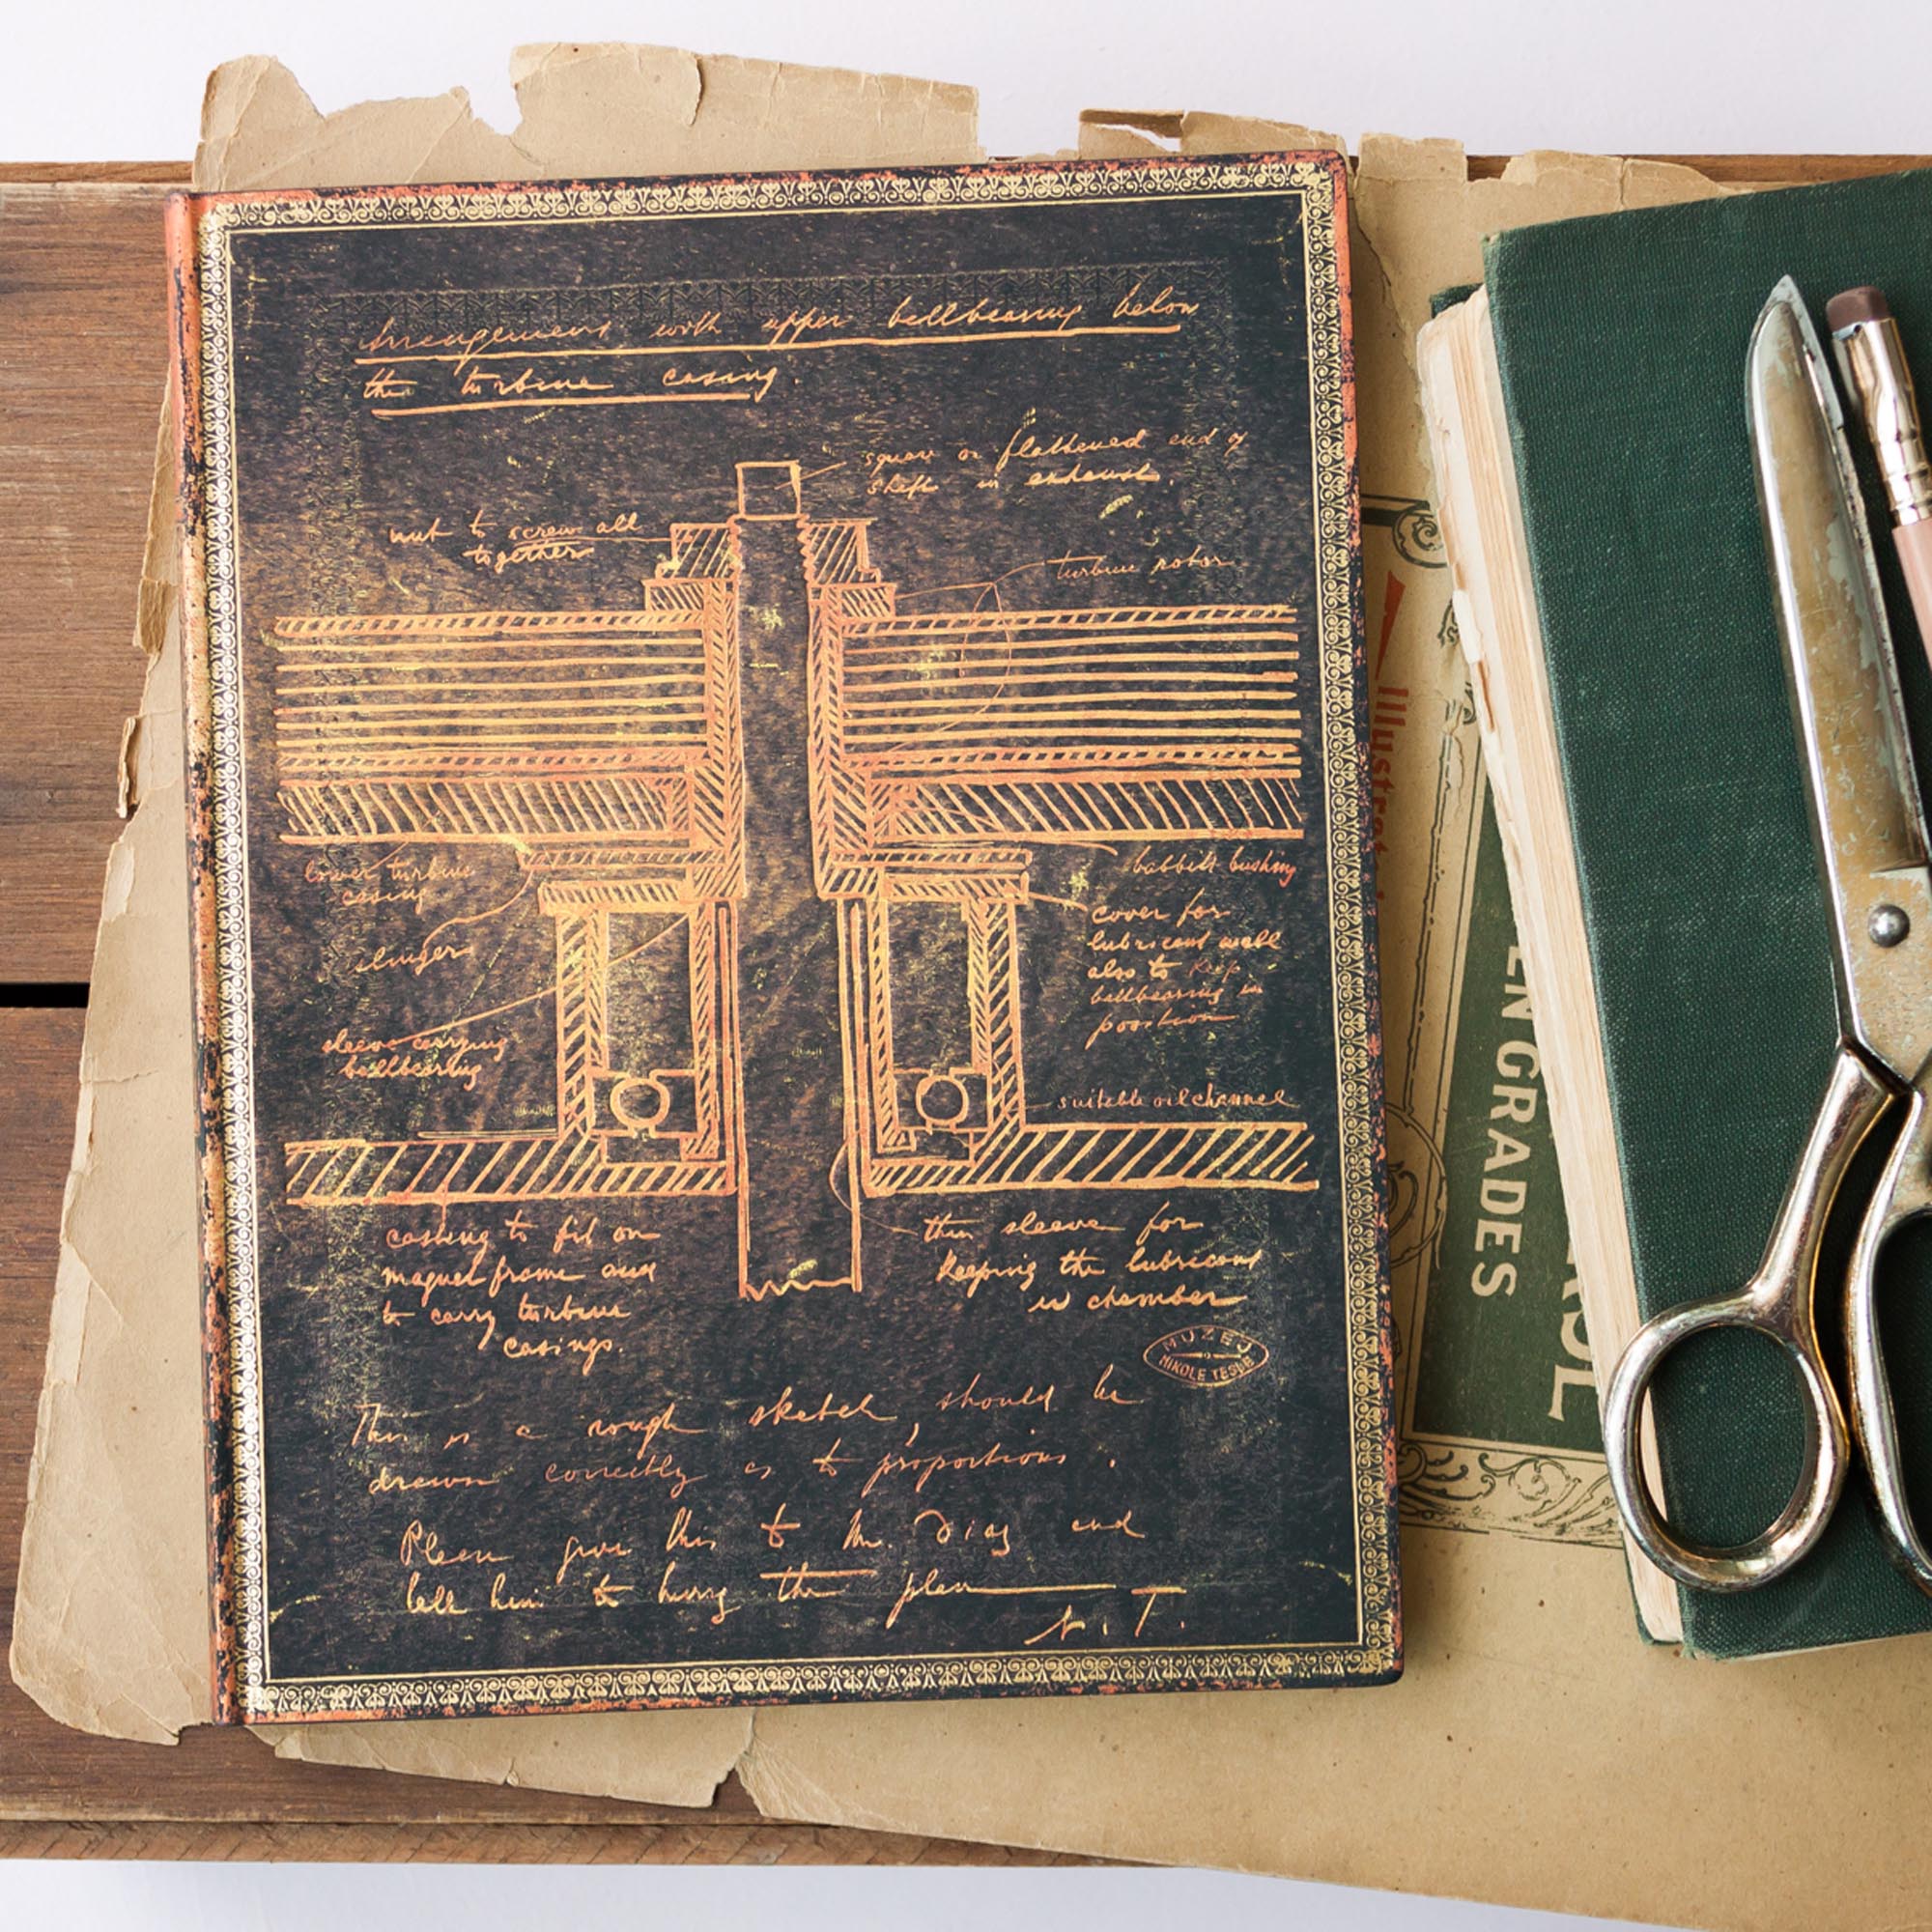 Arrangement with upper ballbearing below
the turbine casing.
square or flattened end of
shaft in exhaust.
nut to screw all
together
turbine rotor
lower turbine
casing
babbitt bushing
slinger
cover for
lubricant well
also to keep
ballbearing in
position
sleeve carrying
ballbearing
suitable oil channel
casing to fit on
magnet frame and
to carry turbine
casings.
thin sleeve for
keeping the lubricant
in chamber
MUZEJ
NIKOLE TESLE
This is a rough sketch, should be
drawn correctly as to proportions.
Please give this to Mr. Diaz and
tell him to hurry the plan
N.T.
Illustrat
EN GRADES